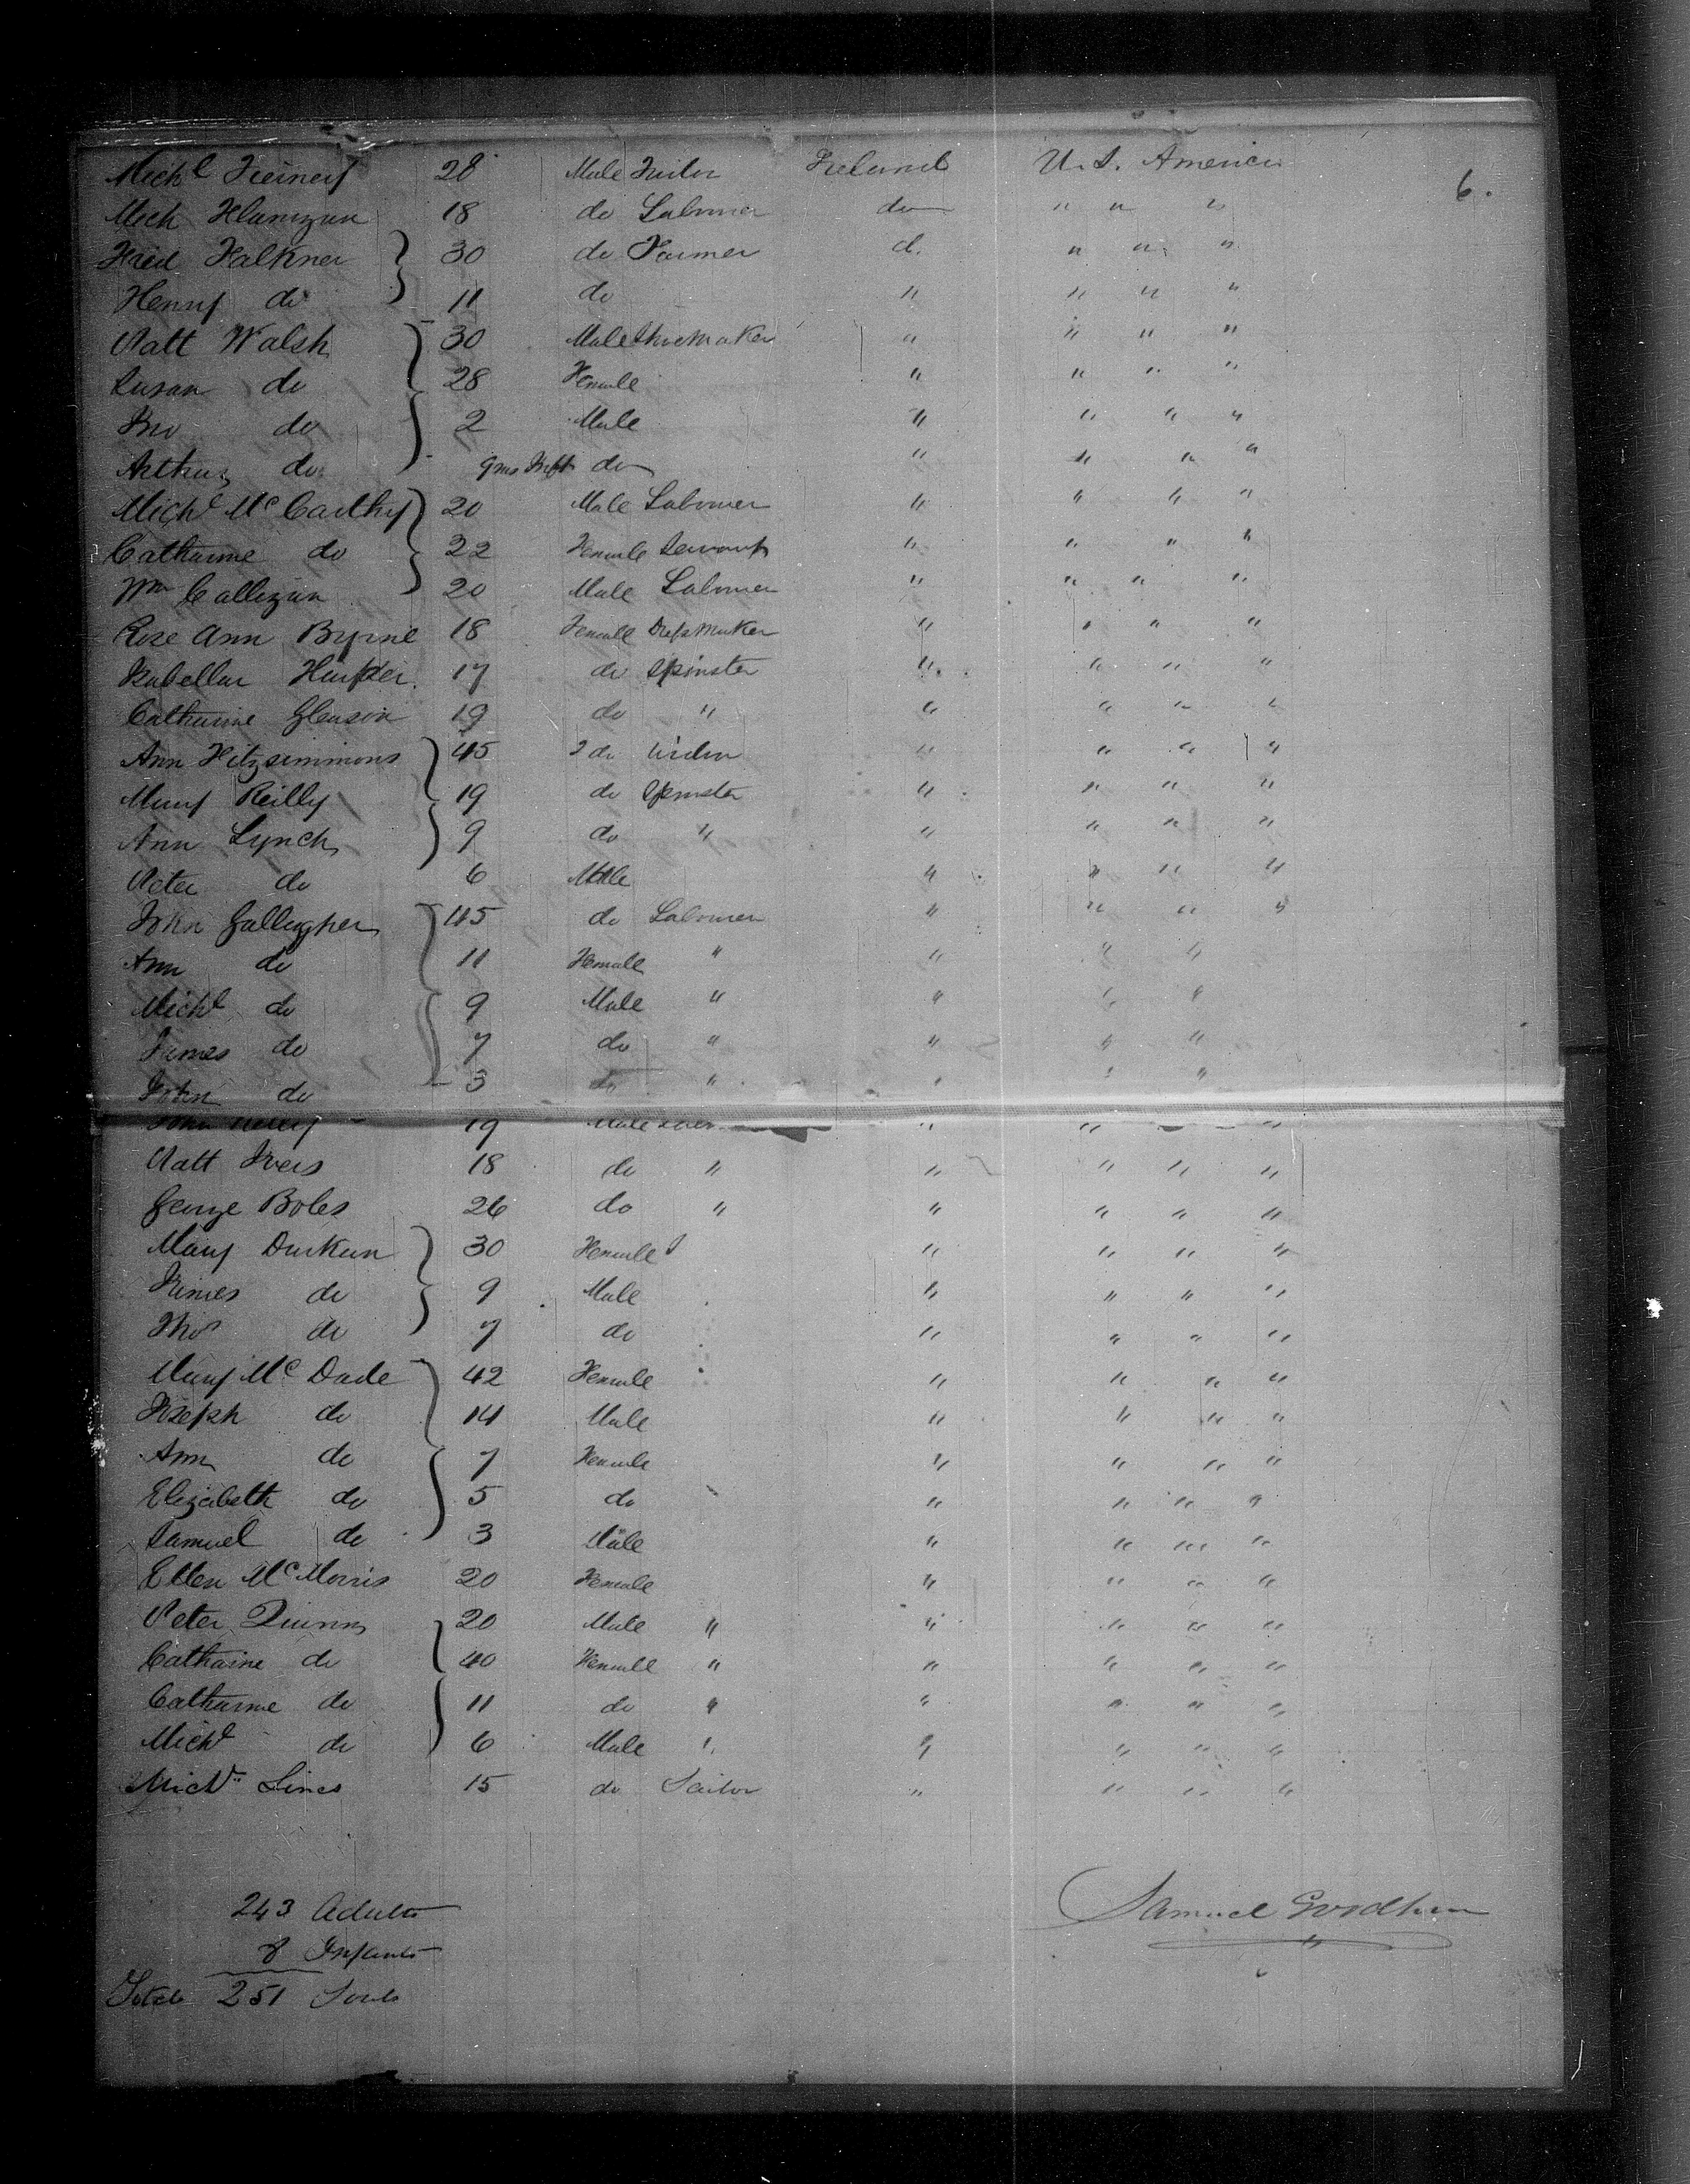 Mich^l Tierney 28 Male Tailor Ireland U. S. America
6.
Mich Flanigan 18 do Labourer do " " "
Fred Falkner 30 do Farmer d. " " "
Henry do 11 do " " " "
Patt Walsh 30 Male Shoemaker " " " "
Susan do 28 Female " " " "
Jno do 2 Male " " " "
Arthur do 9 ms Inft do " " " "
Mich^l Mc Carthy 20 Male Labourer " " " "
Catharine do 22 Female Servant " " " "
Wm Calligan 20 Male Labourer " " " "
Rose Ann Byrne 18 Female Dress Maker " " " "
Isabella Harper 17 do Spinster " " " "
Catharine Gleason 19 do " " " " "
Ann Fitzsimmons 45 do Widow " " " "
Mary Reilly 19 do Spinster " " " "
Ann Lynch 9 do " " " " "
Peter do 6 Male " " " "
John Gallagher 45 do Labourer " " " "
Ann do 11 Female " " " "
Mich^l do 9 Male " " " "
James do 7 do " " " "
John do 3 do " " " "
John 19 Male " " "
Patt Ivers 18 do " " " " "
George Boles 26 do " " " " "
Mary Durkan 30 Female " " " "
James do 9 Male " " " "
Thos do 7 do " " " "
Mary Mc Dade 42 Female " " " "
Joseph do 14 Male " " " "
Ann do 7 Female " " " "
Elizabeth do 5 do " " " "
Samuel do 3 Male " " " "
Ellen Mc Morris 20 Female " " " "
Peter Quinn 20 Male " " " " "
Catharine do 40 Female " " " " "
Catharine do 11 do " " " " "
Mich^l do 6 Male " " " " "
Mich^l Lines 15 do Tailor " " " "
243 Adults
8 Infants
Total 251 Souls
Samuel